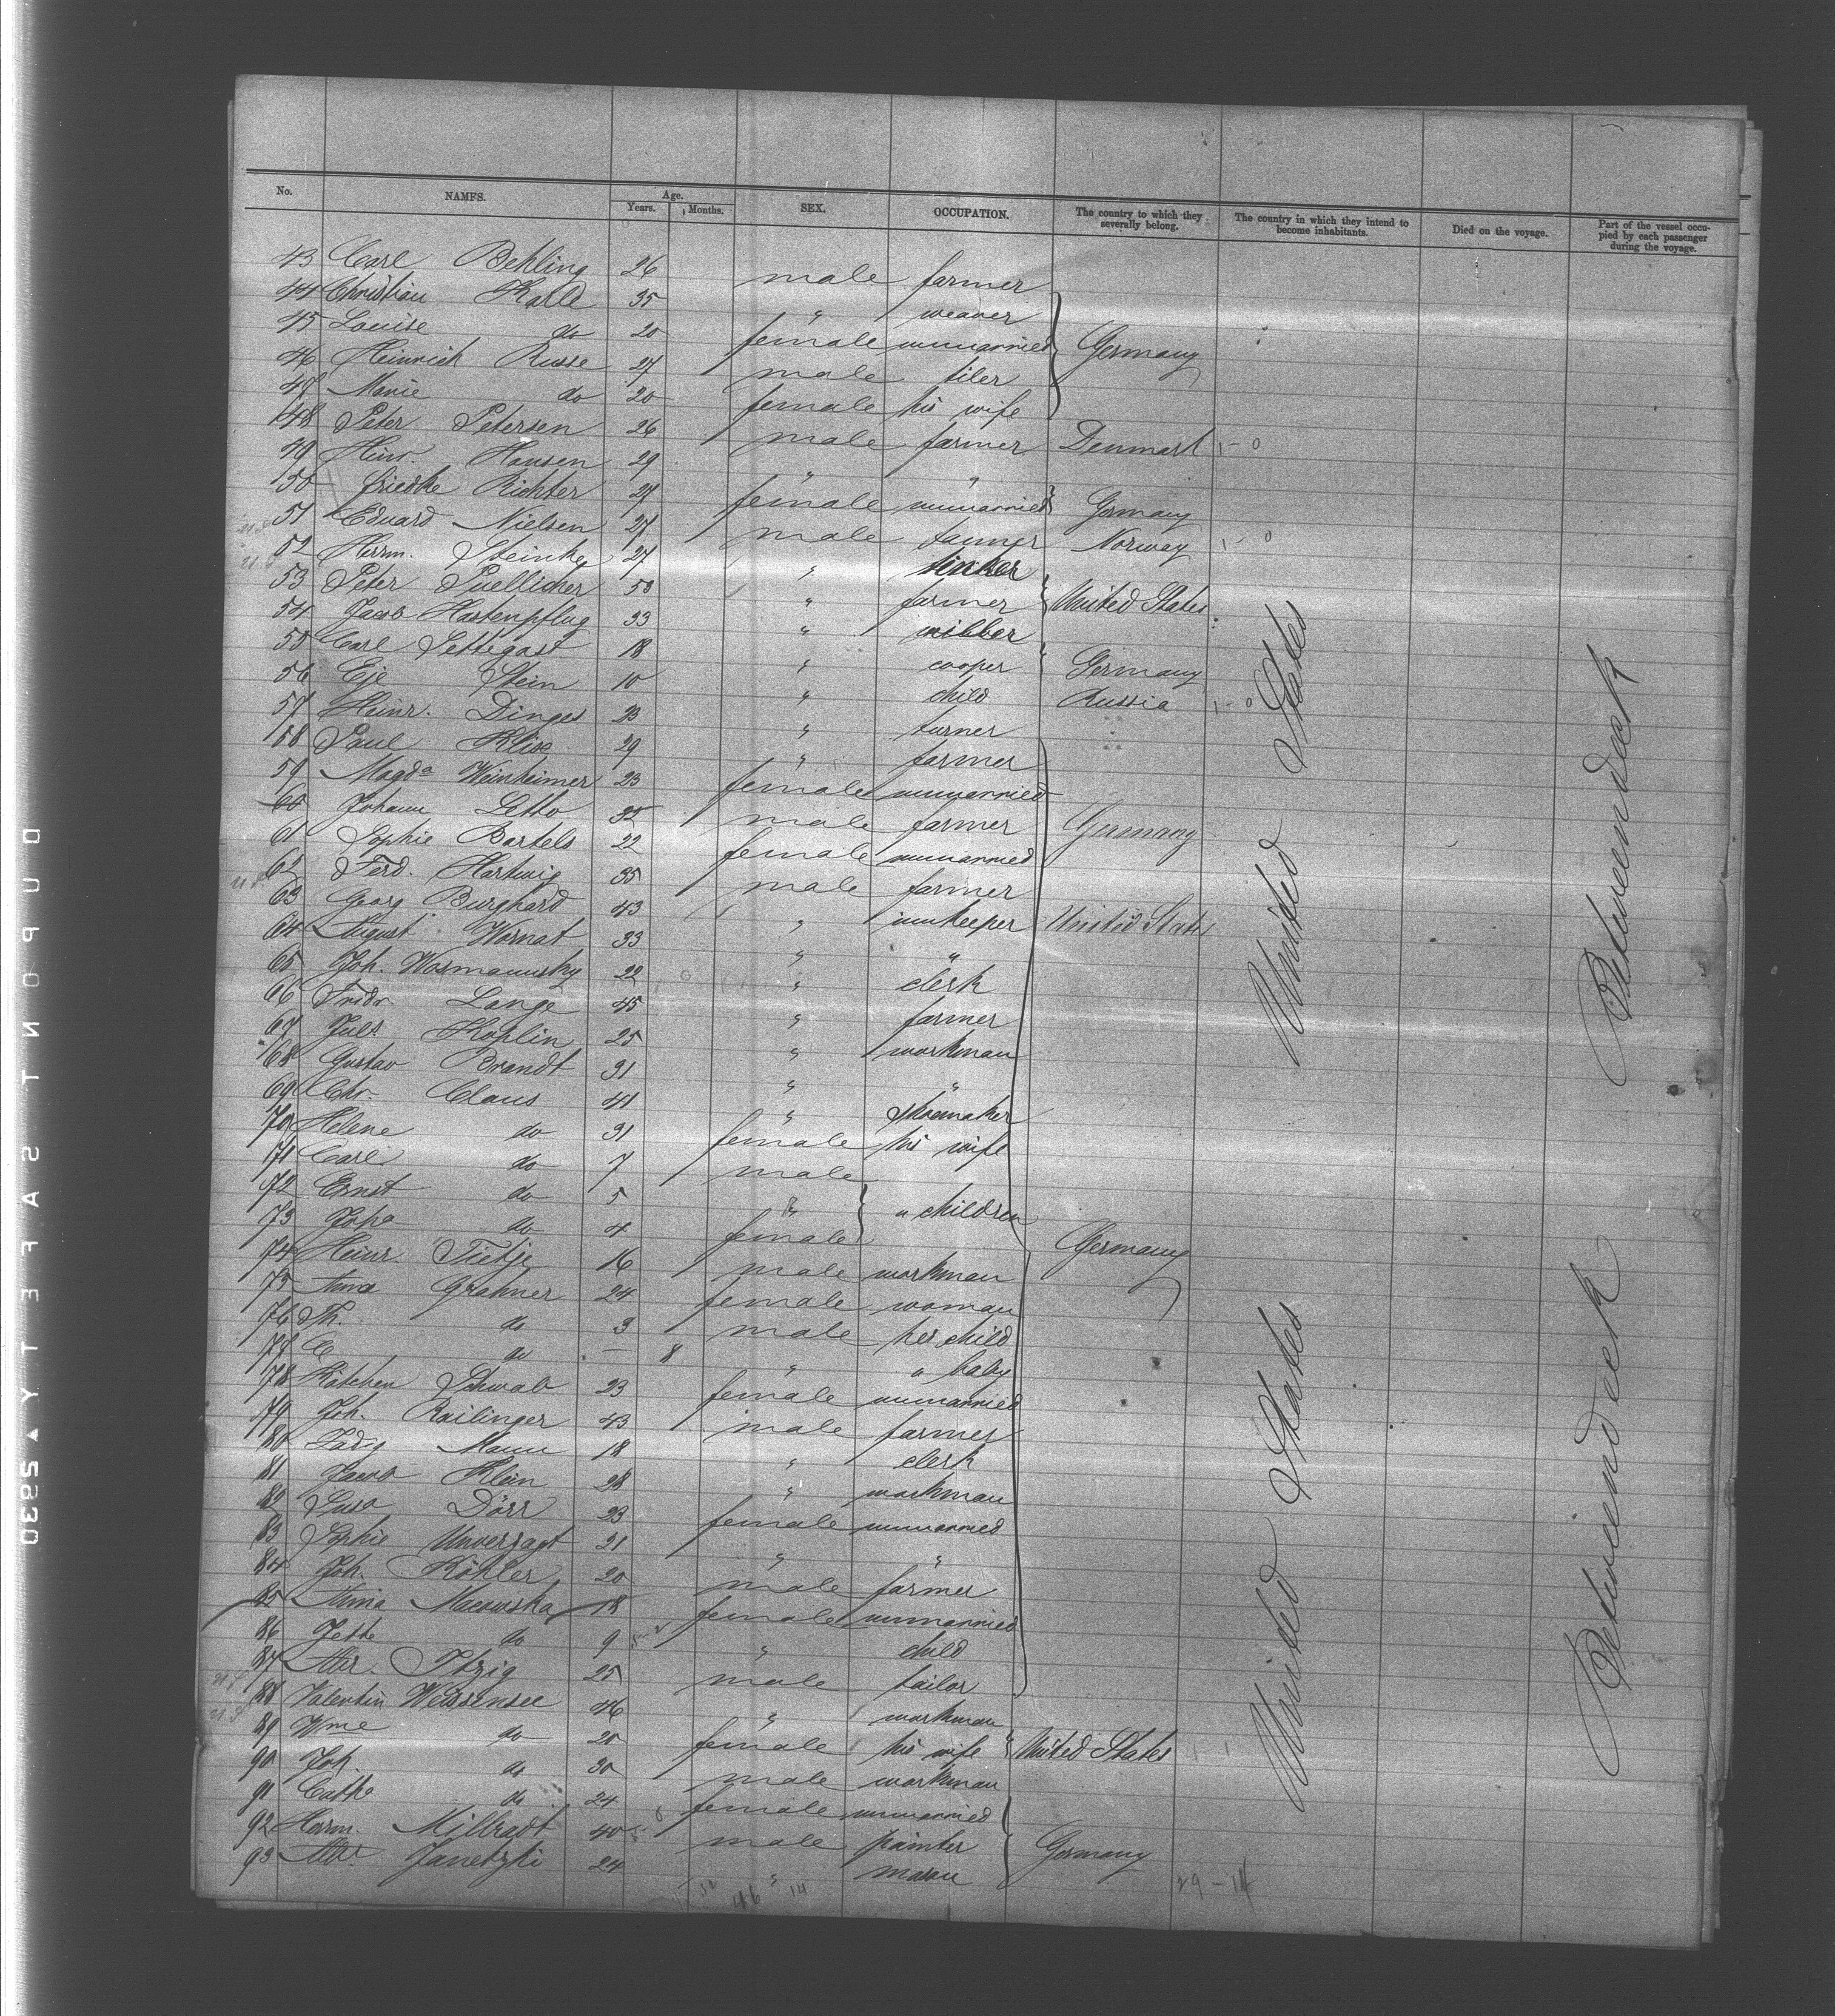 No. NAMES. Age. Years. Months. SEX. OCCUPATION. The country to which they severally belong. The country in which they intend to become inhabitants. Died on the voyage. Part of the vessel occupied by each passenger during the voyage.
43 Carl Behling 26 male farmer
44 Christian Kalle 35 " weaver
45 Louise do 20 female unmarried Germany
46 Heinrich Russe 27 male tiler
47 Marie do 20 female his wife
48 Peter Petersen 26 male farmer Denmark 1-0
49 Hinr. Hansen 29 " "
50 Friedke Richter 27 female unmarried Germany
51 Eduard Nielsen 27 male farmer Norway 1-0
52 Herm. Steinke 27 "
53 Peter Puellicher 50 " farmer United States
54 Jacob Hastenpflug 33 "
55 Carl Settegast 18 " cooper Germany
56 Eje Stein 10 " child Russia 1-0
57 Heinr. Dinges 23 " turner
58 Paul Klise 29 " farmer
59 Magda Weinheimer 23 female unmarried
60 Johann Letto 32 male farmer Germany
61 Sophie Bartels 22 female unmarried
62 Ferd. Hartwig 35 male farmer
63 Georg Burghard 43 " innkeeper United States
64 August Wornat 33 " "
65 Joh. Wosmannsky 22 " clerk
66 Fridr. Lange 45 " farmer
67 Juls Koplin 25 " workman
68 Gustav Brandt 31 " "
69 Chr. Claus 41 " shoemaker
70 Helene do 31 female his wife
71 Carl do 7 male
72 Ernst do 5 " " children
73 do 4 female
74 Heinr. Tietje 16 male workman Germany
75 Anna Grahner 24 female woman
76 Th. do 3 male her child
77 C do — 8 " " baby
78 Kätchen Schwab 23 female unmarried
79 Joh. Railinger 43 male farmer
80 Ludig Mann 18 " clerk
81 Jacob Klein 28 " workman
82 Susa Dörr 23 female unmarried
83 Sophie Unversagt 21 " "
84 Joh. Köhler 20 male farmer
85 Mina 18 female unmarried
86 Jette do 9 " child
87 Abr. Itzig 25 male tailor
88 Valentin Weissensee 46 " workman
89 Wme do 20 female his wife United States
90 Joh. do 30 male workman
91 Cathe do 24 female unmarried
92 Herm. Millradt 40 male painter Germany
93 Abr. Janetzki 24 " mason
46 14 29-14
United States
United States
Betweendeck
Betweendeck
DUPONT SAFETY ▲ 52930